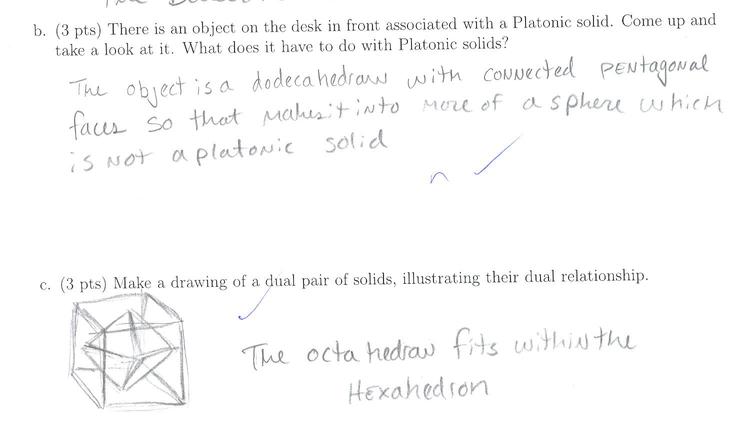 b. (3 pts) There is an object on the desk in front associated with a Platonic solid. Come up and
take a look at it. What does it have to do with Platonic solids?
The object is a dodecahedraw with connected pentagonal
faces so that makes it into more of a sphere which
is not a platonic solid
c. (3 pts) Make a drawing of a dual pair of solids, illustrating their dual relationship.
The octahedraw fits within the
Hexahedron